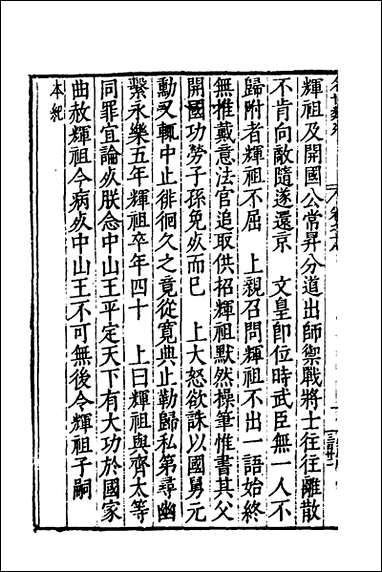 輝祖及開國公常昇分道出師禦戰將士往往離散
不肯向敵隨遂還京　文皇卽位時武臣無一人不
歸附者輝祖不屈　上親召問輝祖不出一語始終
無推戴意法官追取供招輝祖默然操筆惟書其父
開國功勞子孫免死而已　上大怒欲誅以國舅元
勳又輒中止徘徊久之竟從寬典止勒歸私第尋幽
繫永樂五年輝祖卒年四十　上曰輝祖與齊太等
同罪宜論死朕念中山王平定天下有大功於國家
曲赦輝祖今病死中山王不可無後令輝祖子嗣
本紀